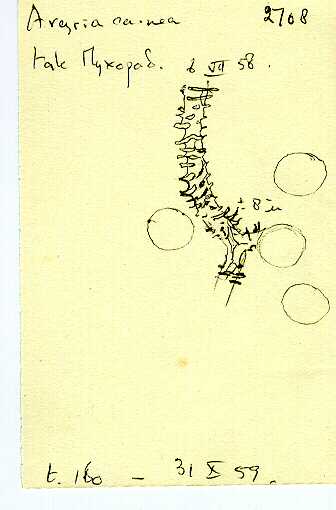 Arcyria carnea 2708
tak Пухорав. 6 VII 58.
8 µ
t. 160 – 31 X 59.